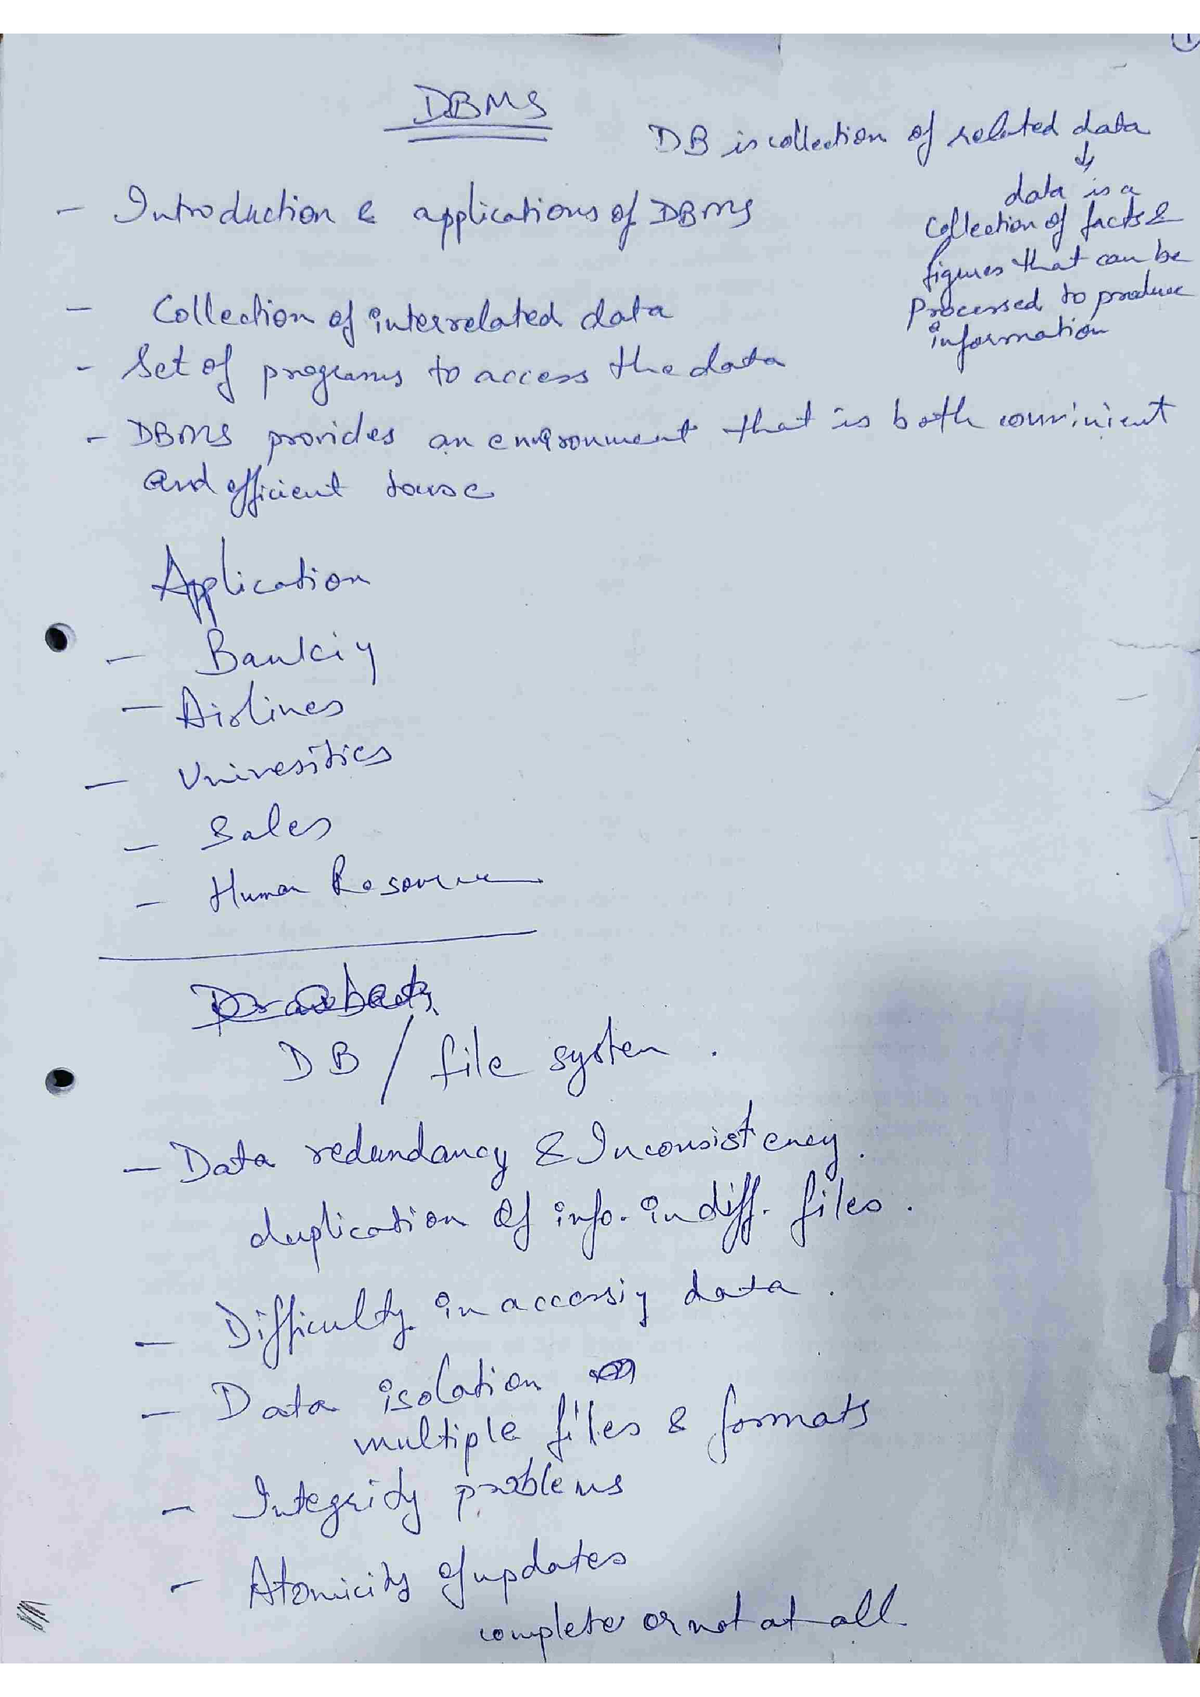 1
DBMS
DB is collection of related data
↓
data is a
collection of facts &
figures that can be
processed to produce
information
- Introduction & applications of DBMS
- Collection of interrelated data
- Set of programs to access the data
- DBMS provides an environment that is both convinient
and efficient to use
Application
- Banking
- Airlines
- Univesities
- Sales
- Human Resource
Drawbacks
DB / file system.
- Data redundancy & Inconsistency.
duplication of info. in diff. files.
- Difficulty in accessing data.
- Data isolation
multiple files & formats
- Integrity problems
- Atomicity of updates
complete or not at all